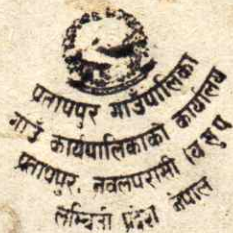 प्रतापपुर गाउँपालिका
गाउँ कार्यपालिकाको कार्यालय
प्रतापपुर, नवलपरासी (ब.सु.प
लुम्बिनी प्रदेश नेपाल